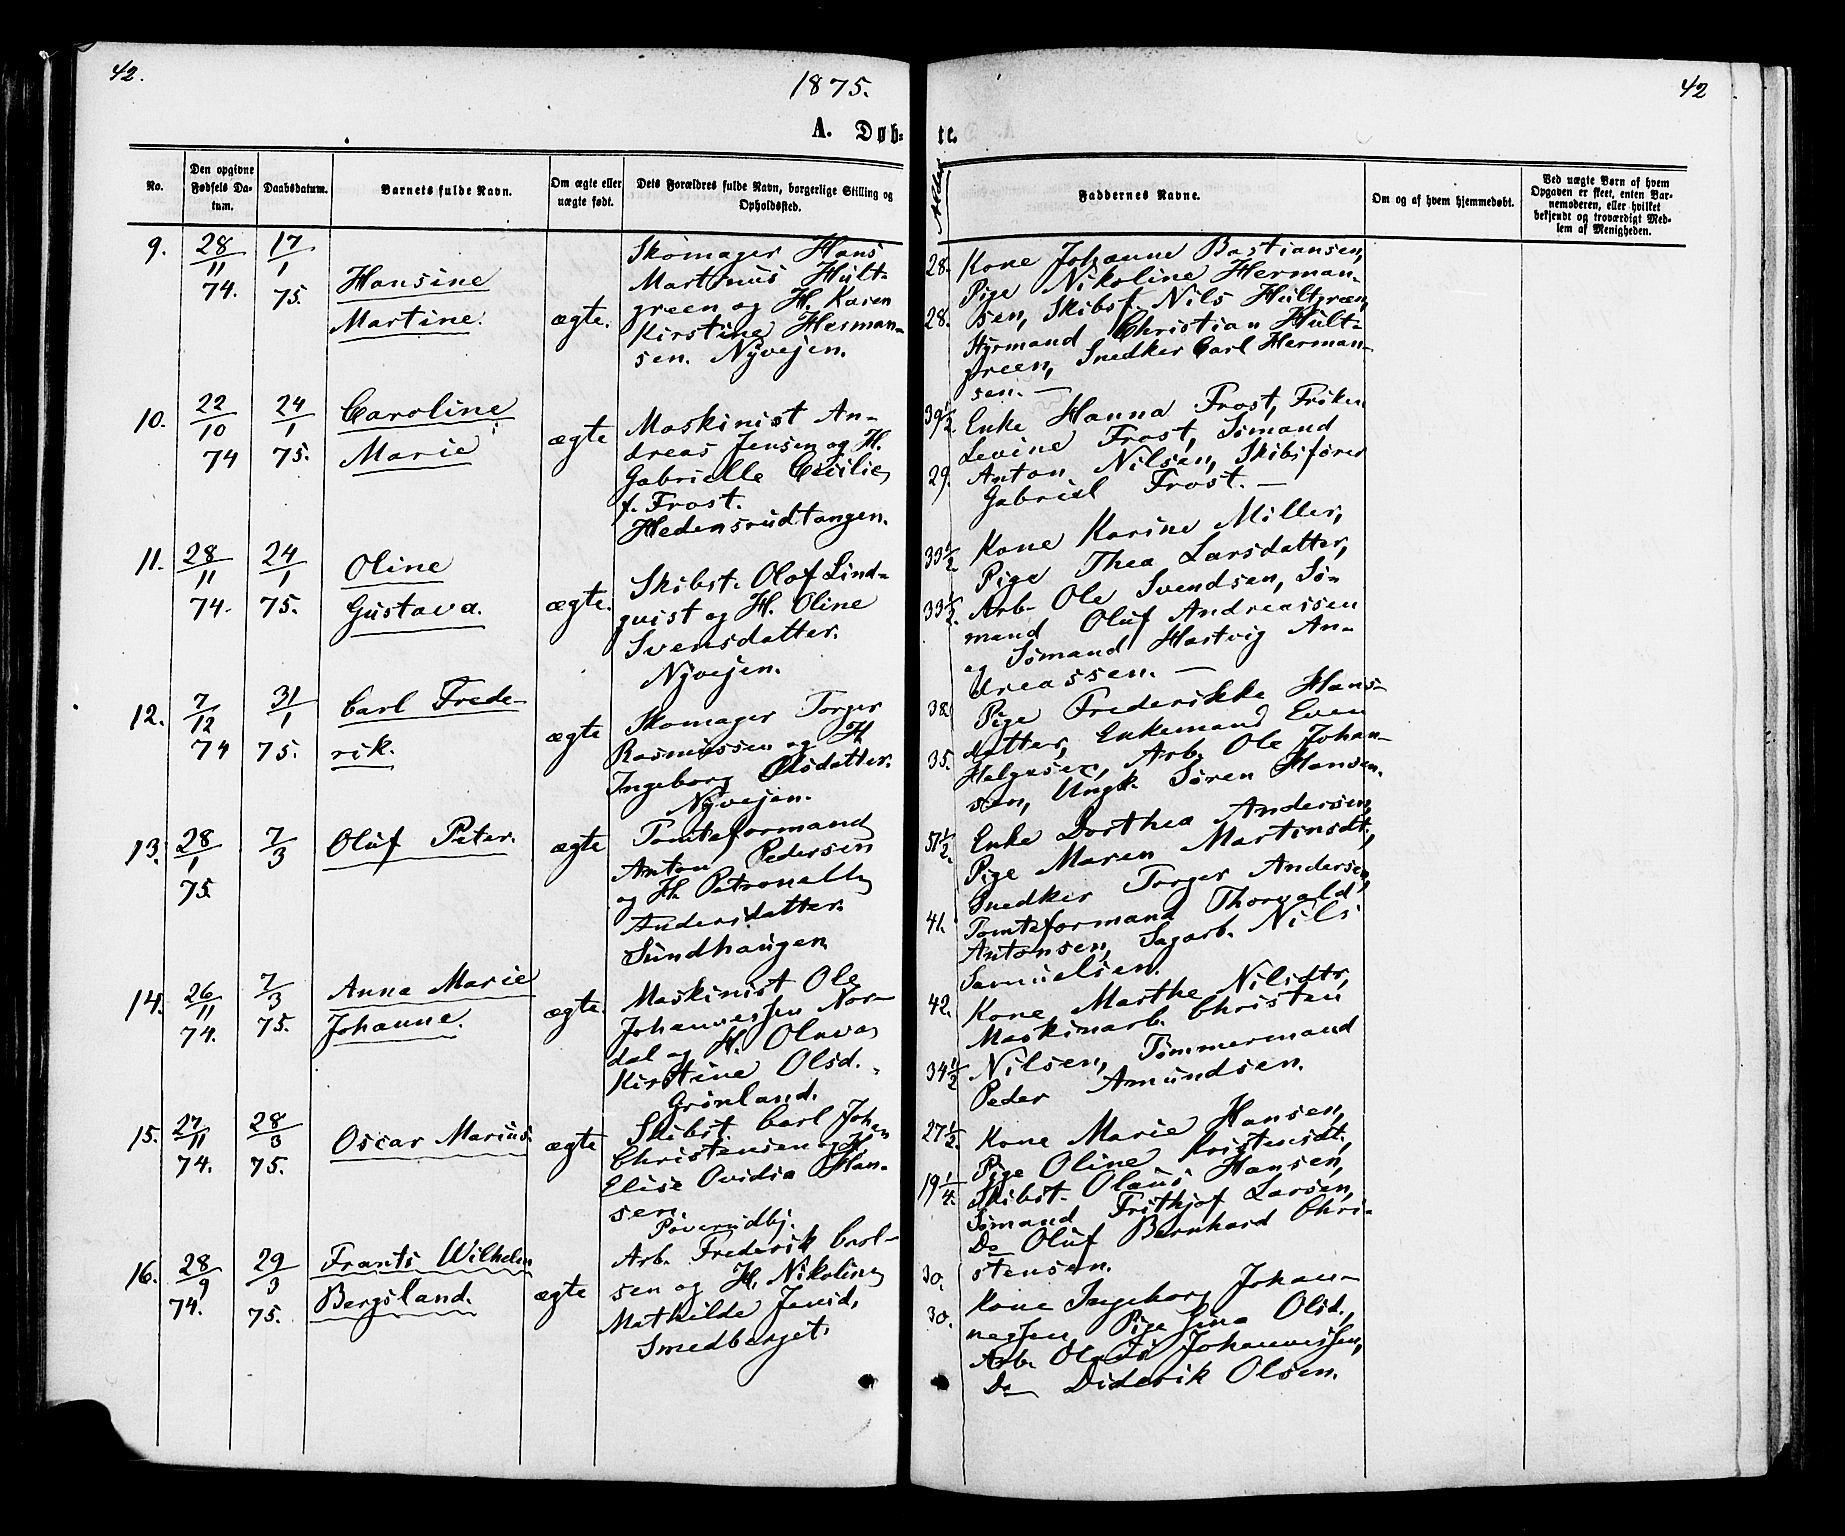 42.
1875.
42
A. Døb-
te.
No.
Den opgivne Fødsels Da-tum.
Daabsdatum.
Barnets fulde Navn.
Om ægte eller uægte født.
Dets Forældres fulde Navn, borgerlige Stilling og Opholdssted.
Alder
Faddernes Navne.
Om og af hvem hjemmedøbt.
Ved uægte Børn af hvem Opgaven er skeet, enten Bar-nemoderen, eller hvilket bekjendt og troværdigt Med-lem af Menigheden.
9.
28/11 74.
17/1 75.
Hansine
Martine.
ægte.
Skomager Hans
Martinus Hult-
green og H. Karen
Kirstine Herman-
sen. Nyvejen.
28.
28.
Kone Johanne Bastiansen,
Pige Nikoline Herman-
sen, Skibsf. Nils Hultgreen,
Styrmand Christian Hult-
green, Snedker Carl Herman-
sen. —
10.
22/10 74
24/1 75.
Caroline
Marie
ægte
Maskinist An-
dreas Jensen og H.
Gabrielle Cecilie
f. Frost.
Hedensrudtangen.
39½.
29.
Enke Hanna Frost, Frøken
Levine Frost, Sømand
Anton Nilsen, Skibsfører
Gabriel Frost. —
11.
28/11 74.
24/1 75.
Oline
Gustava.
ægte.
Skibst. Olof Lind-
quist og H. Oline
Svensdatter.
Nyvejen.
33½.
33½.
Kone Karine Miller,
Pige Thea Larsdatter,
Arb. Ole Svendsen, Sø-
mand Oluf Andreassen
og Sømand Hartvig An-
dreassen. —
12.
7/12 74
31/1 75.
Carl Frede-
rik.
ægte
Skomager Torger
Rasmussen og H.
Ingeborg Olsdatter.
Nyvejen.
38
35.
Pige Frederikke Hans-
datter, Enkemand Even
Helgesen, Arb. Ole Johan-
sen, Ungk. Søren Hansen.
13.
28/1 75.
7/3
Oluf Peter.
ægte
Tomteformand
Anton Pedersen
og H. Petronelle
Andersdatter.
Sundhaugen
51½.
41.
Enke Dorthea Andersen,
Pige Maren Martinsdt.,
Snedker Torger Andersen,
Tomteformand Thorvald
Antonsen, Sagarb. Nils
Samuelsen.
14.
26/11 74.
7/3 75.
Anna Marie
Johanne.
ægte.
Maskinist Ole
Johannessen Nor-
dal og H. Olava
Kirstine Olsd.
Grønland.
42.
34½
Kone Marthe Nilsdtr,
Maskinarb. Christen
Nilsen, Tømmermand
Peder Amundsen.
15.
27/11 74.
28/3 75.
Oscar Marius.
ægte
Skibst Carl Johan
Christensen og H.
Elise Ovidia Han-
sen.
Poverudbj.
27½.
19¼.
Kone Marie Hansen,
Pige Oline Kristensdt.,
Skibst. Olaus Hansen,
Sømand Frithjof Larsen,
Do Oluf Bernhard Chri-
stensen.
16.
28/9 74.
29/3 75.
Frants Wilhelm
Bergsland.
ægte
Arb. Frederik Carl-
sen og H. Nikoline
Mathilde Jensd.
Smedberget.
30.
30.
Kone Ingeborg Johan-
nessen, Pige Sina Olsd.,
Arb. Olaus Johannessen,
Do Diderik Olsen.